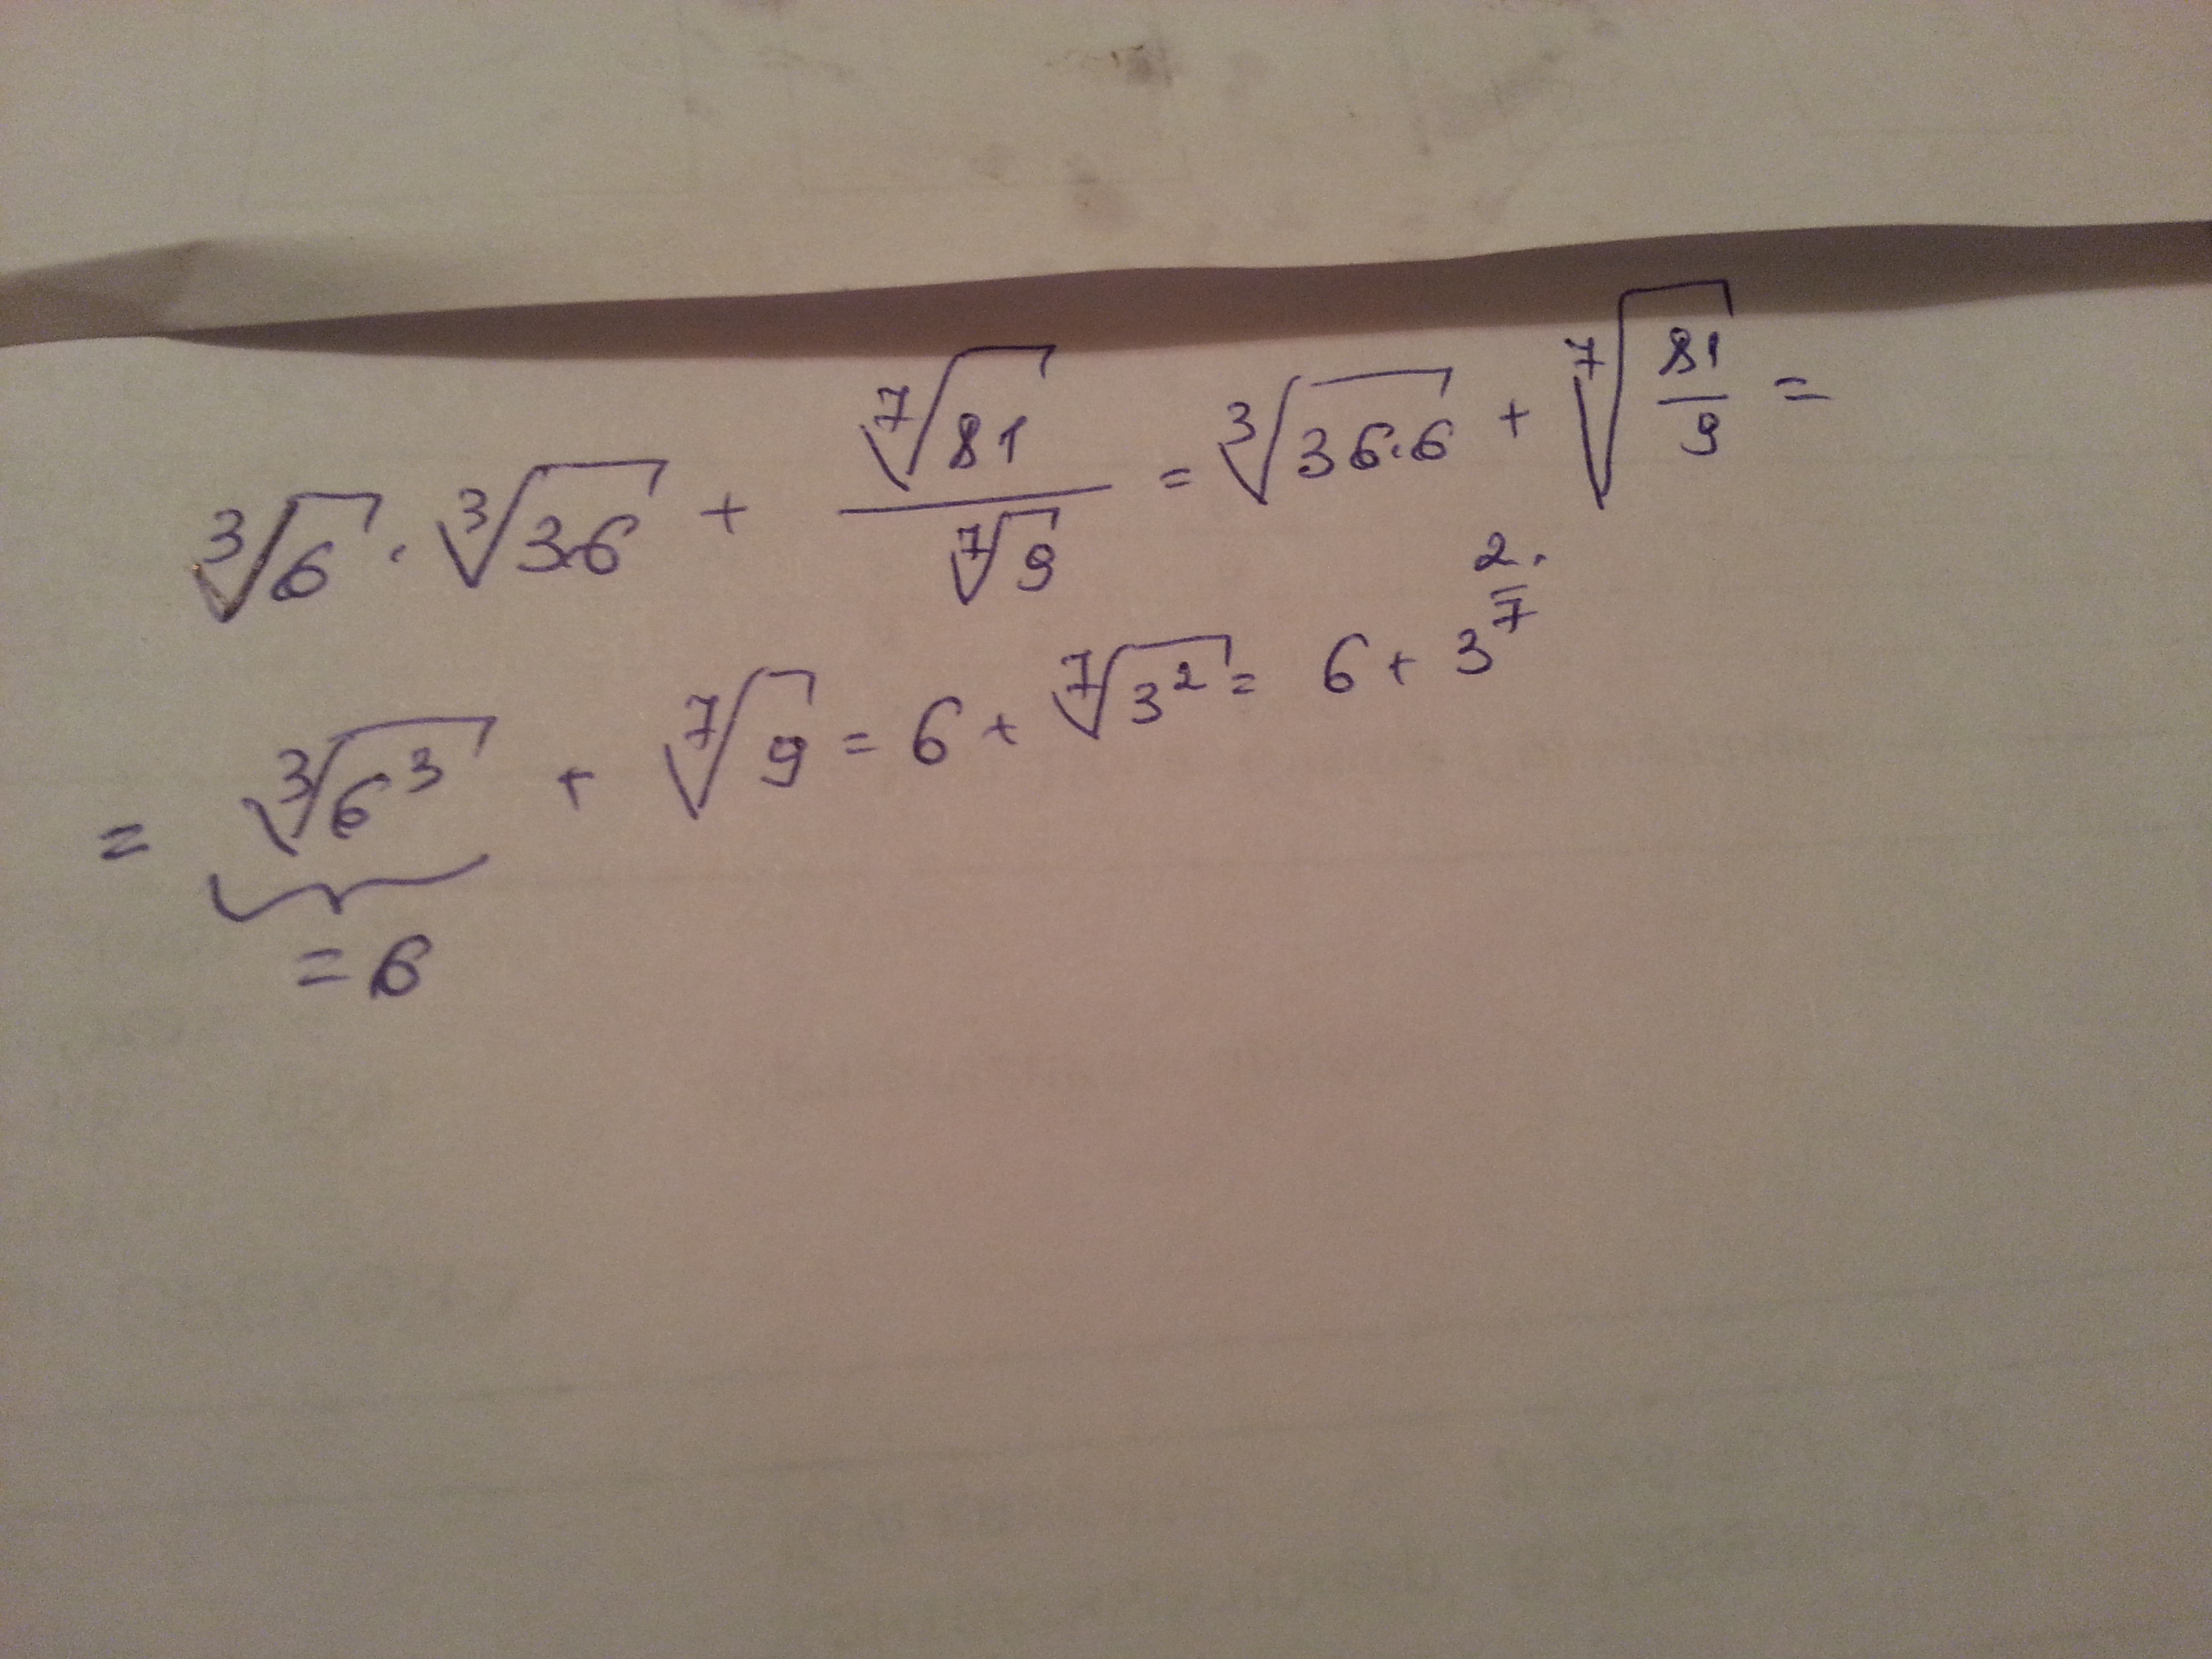 ∛6 · ∛36 + ⁷√81 / ⁷√9 = ∛(36·6) + ⁷√(81/9) =
= ∛(6³) + ⁷√9 = 6 + ⁷√(3²) = 6 + 3^(2/7).
= 6